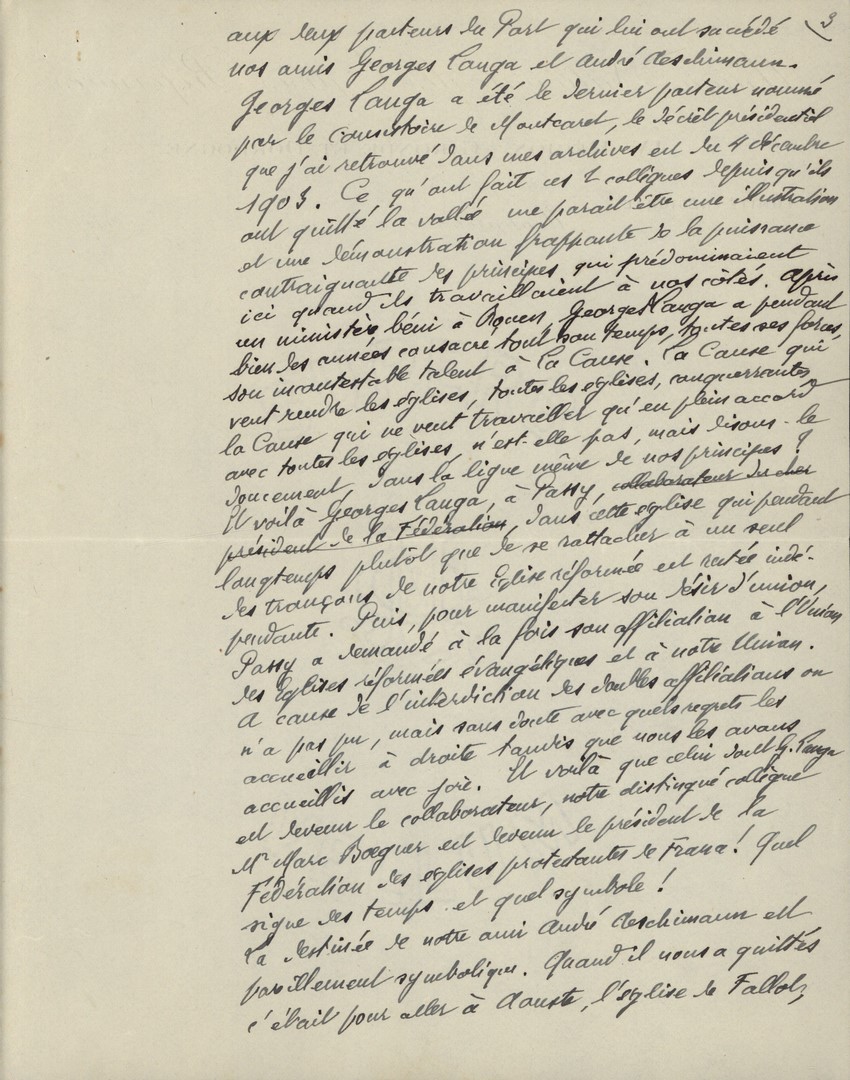 3
aux deux pasteurs du Port qui lui ont succédé
nos amis Georges Lauga et André Aeschimann.
Georges Lauga a été le dernier pasteur nommé
par le consistoire de Montcaret, le décret présidentiel
que j'ai retrouvé dans mes archives est du 4 décembre
1903. Ce qu'ont fait ces 2 collègues depuis qu'ils
ont quitté la vallée me parait être une illustration
et une démonstration frappante de la puissance
contraignante des principes qui prédominaient
ici quand ils travaillaient à nos côtés. Après
un ministère béni à Rouen, Georges Lauga a pendant
bien des années consacré tout son temps, toutes ses forces,
son incontestable talent à La Cause. La Cause qui
veut rendre les églises, toutes les églises, conquérantes,
la Cause qui ne veut travailler qu'en plein accord
avec toutes les églises, n'est-elle pas, mais disons-le
doucement, dans la ligne même de nos principes ?
Et voilà Georges Lauga, à Passy, collaborateur du cher
président de la Fédération, dans cette église qui pendant
longtemps plutôt que de se rattacher à un seul
des tronçons de notre Eglise réformée est restée indé-
pendante. Puis, pour manifester son désir d'union,
Passy a demandé à la fois son affiliation à l'Union
des Eglises réformées évangéliques et à notre Union.
A cause de l'interdiction des doubles affiliations on
n'a pas pu, mais sans doute avec quels regrets les
accueillir à droite tandis que nous les avons
accueillis avec joie. Et voilà que celui dont G. Lauga
est devenu le collaborateur, notre distingué collègue
Mr Marc Boegner est devenu le président de la
Fédération des églises protestantes de France ! Quel
signe des temps et quel symbole !
La destinée de notre ami André Aeschimann est
pareillement symbolique. Quand il nous a quittés
c'était pour aller à Aouste, l'église de Fallot,